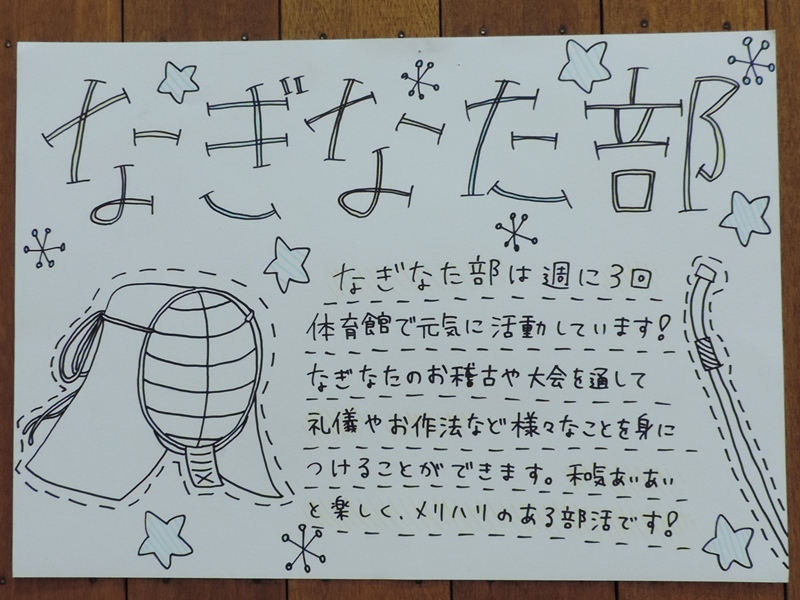 なぎなた部
なぎなた部は週に3回
体育館で元気に活動しています!
なぎなたのお稽古や大会を通して
礼儀やお作法など様々なことを身に
つけることができます。和気あいあい
と楽しく、メリハリのある部活です!